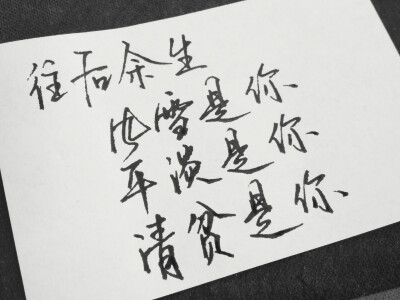 往后余生
风雪是你
平淡是你
清贫是你